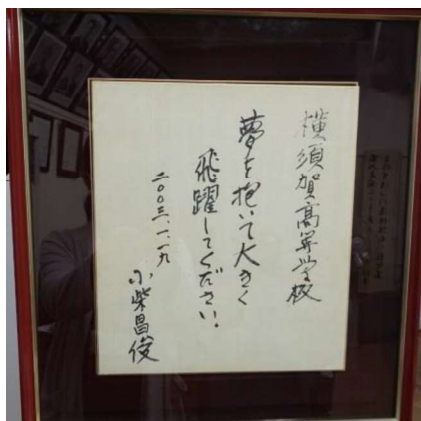 横須賀高等学校
夢を抱いて大きく
飛躍してください.
二〇〇三、一、一九
小柴昌俊